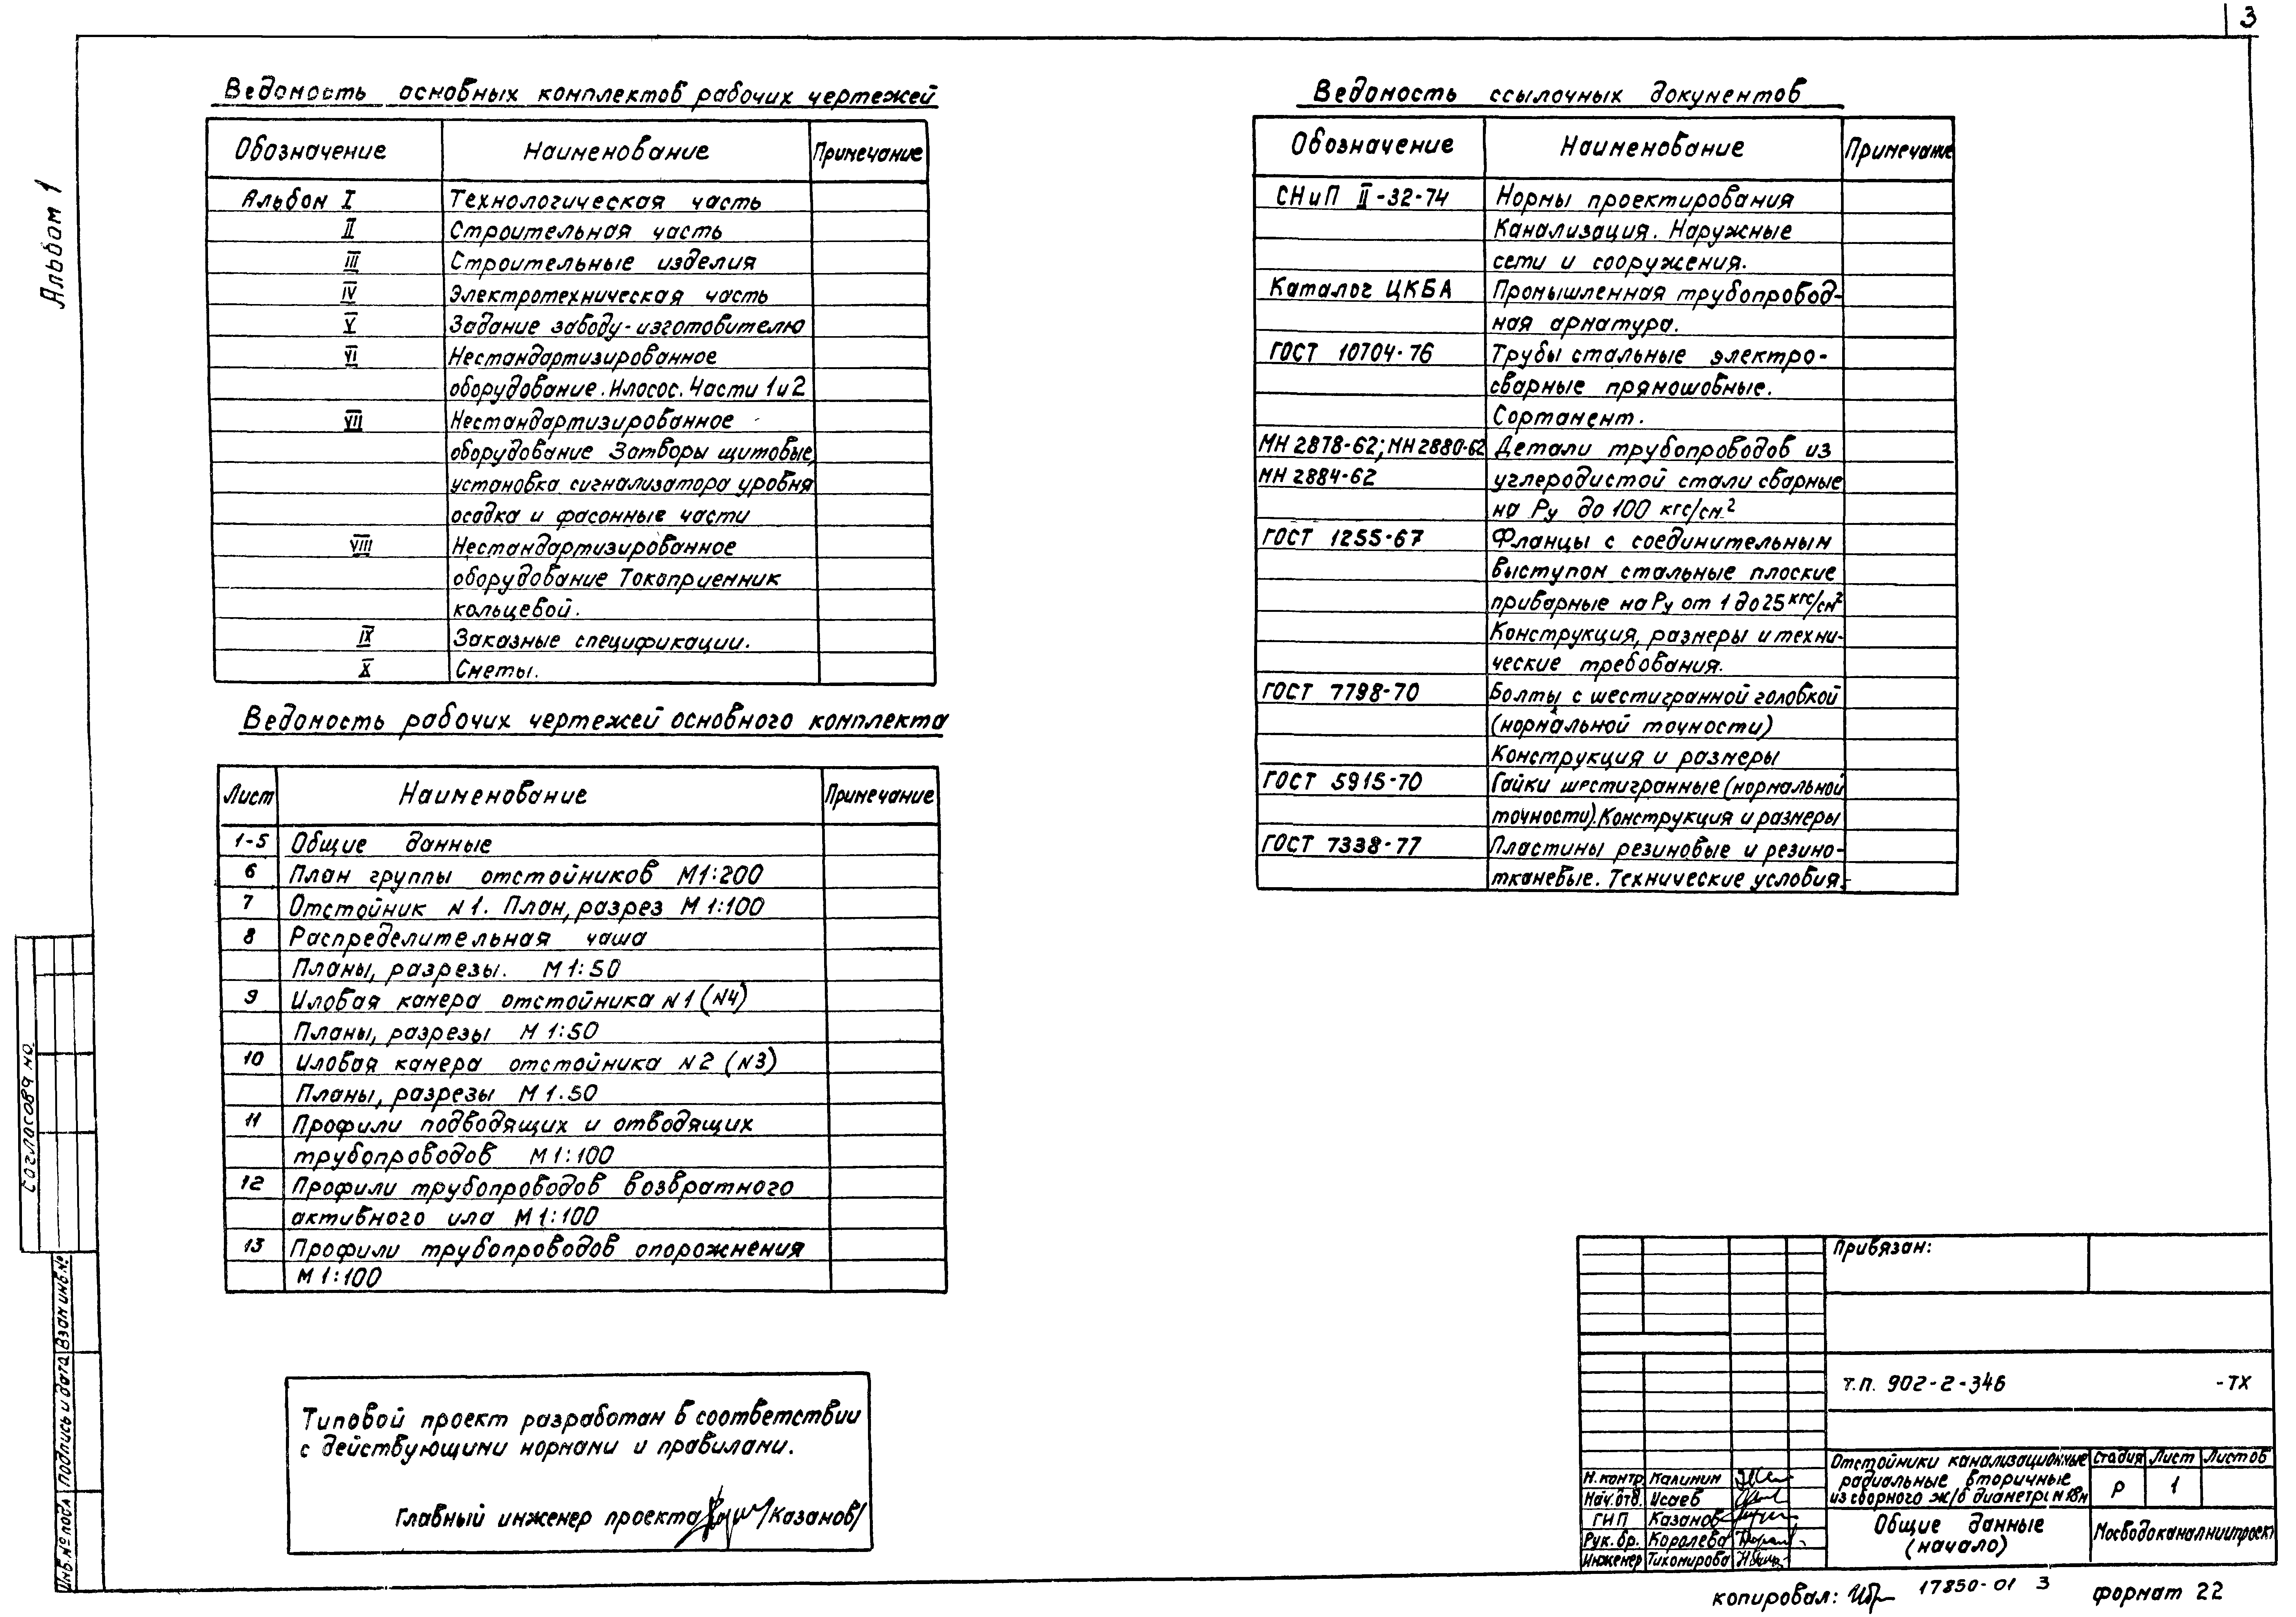 3
Альбом 1
Ведомость основных комплектов рабочих чертежей
Обозначение Наименование Примечание
Альбом I Технологическая часть
II Строительная часть
III Строительные изделия
IV Электротехническая часть
V Задание заводу-изготовителю
VI Нестандартизированное
оборудование. Илосос. Части 1 и 2
VII Нестандартизированное
оборудование Затворы щитовые,
установка сигнализатора уровня
осадка и фасонные части
VIII Нестандартизированное
оборудование Токоприемник
кольцевой.
IX Заказные спецификации.
X Сметы.
Ведомость рабочих чертежей основного комплекта
Лист Наименование Примечание
1-5 Общие данные
6 План группы отстойников М1:200
7 Отстойник N1. План, разрез М 1:100
8 Распределительная чаша
Планы, разрезы. М 1:50
9 Иловая камера отстойника N1 (N4)
Планы, разрезы М 1:50
10 Иловая камера отстойника N2 (N3)
Планы, разрезы М 1.50
11 Профили подводящих и отводящих
трубопроводов М1:100
12 Профили трубопроводов возвратного
активного ила М1:100
13 Профили трубопроводов опорожнения
М 1:100
Типовой проект разработан в соответствии
с действующими нормами и правилами.
Главный инженер проекта /Казанов/
Ведомость ссылочных документов
Обозначение Наименование Примечание
СНиП II-32-74 Нормы проектирования
Канализация. Наружные
сети и сооружения.
Каталог ЦКБА Промышленная трубопровод-
ная арматура.
ГОСТ 10704-76 Трубы стальные электро-
сварные прямошовные.
Сортамент.
МН 2878-62; МН 2880-62 Детали трубопроводов из
МН 2884-62 углеродистой стали сварные
на Ру до 100 кгс/см²
ГОСТ 1255-67 Фланцы с соединительным
выступом стальные плоские
приварные на Ру от 1 до 25 кгс/см²
Конструкция, размеры и техни-
ческие требования.
ГОСТ 7798-70 Болты с шестигранной головкой
(нормальной точности)
Конструкция и размеры
ГОСТ 5915-70 Гайки шестигранные (нормальной
точности). Конструкция и размеры
ГОСТ 7338-77 Пластины резиновые и резино-
тканевые. Технические условия.
Согласовано
Инв.№ подл Подпись и дата Взам инв.№
Привязан:
т.п. 902-2-346 -ТХ
Н.контр. Калинин
Нач.отд. Исаев
ГИП Казанов
Рук.бр. Королева
Инженер Тихомирова
Отстойники канализационные
радиальные вторичные
из сборного ж/б диаметром 18м
Стадия Лист Листов
Р 1
Общие данные
(начало)
Мосводоканалниипроект
копировал: 17850-01 3 формат 22